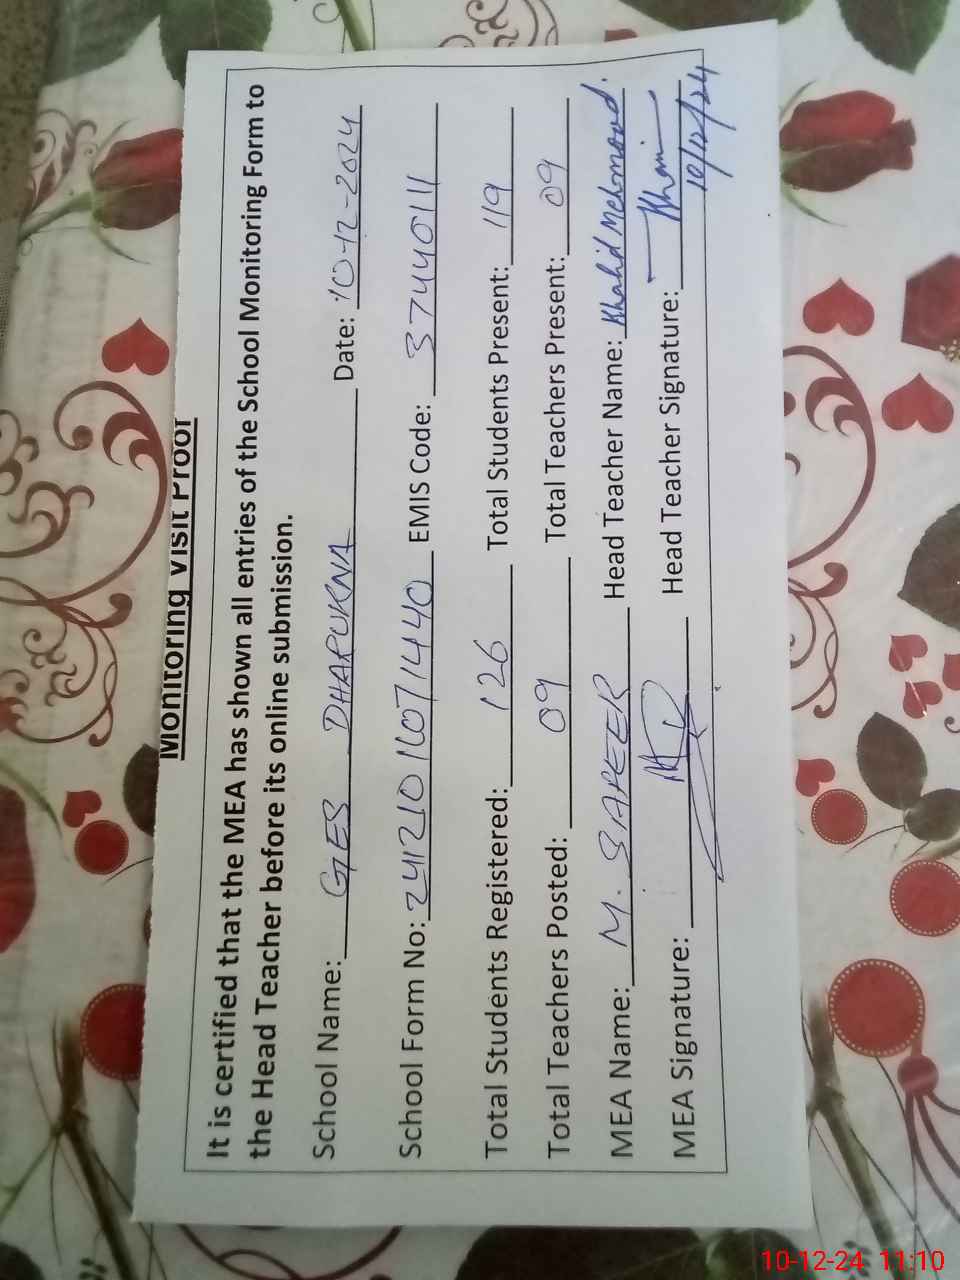 Monitoring Visit Proof
It is certified that the MEA has shown all entries of the School Monitoring Form to
the Head Teacher before its online submission.
School Name: GES DHARUKNA Date: 10-12-2024
School Form No: 2412101607141440 EMIS Code: 37440111
Total Students Registered: 126 Total Students Present: 119
Total Teachers Posted: 09 Total Teachers Present: 09
MEA Name: M. SAFEER Head Teacher Name: Khalid Mehmood.
MEA Signature: Head Teacher Signature:
10/12/24
10-12-24 11:10